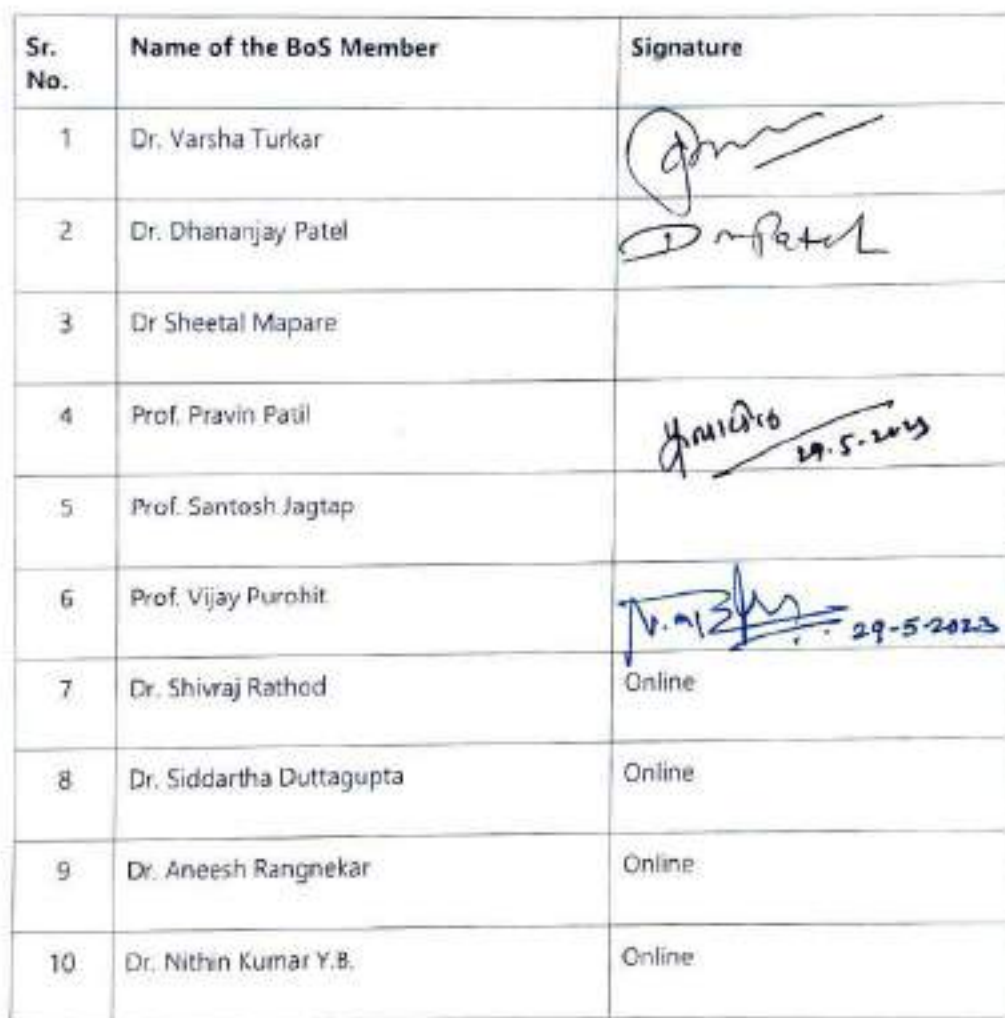 Sr. No. Name of the BoS Member Signature
1 Dr. Varsha Turkar
2 Dr. Dhananjay Patel Patel
3 Dr Sheetal Mapare
4 Prof. Pravin Patil 29-5-2023
5 Prof. Santosh Jagtap
6 Prof. Vijay Purohit 29-5-2023
7 Dr. Shivraj Rathod Online
8 Dr. Siddartha Duttagupta Online
9 Dr. Aneesh Rangnekar Online
10 Dr. Nithin Kumar Y.B. Online